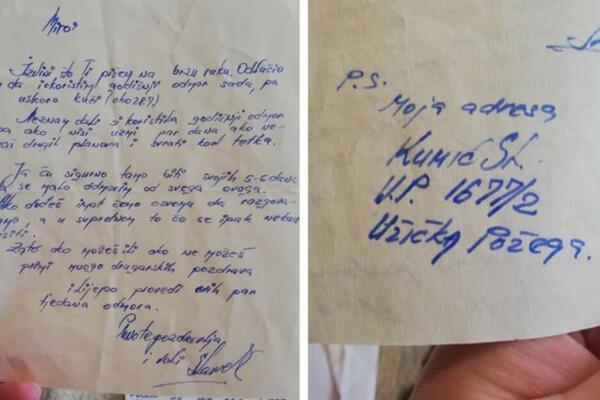 Mirei
Izvini što Ti pišem na brzu ruku. Odlučio
da iskoristim godišnji odmor sada, pa
uskoro kući
Neznam dali si koristila godišnji odmor
pa ako nisi uzmi par dana ako ne-
maš drugih planova i svrati kod tetka.
Ja ću sigurno tamo biti svojih 5-6 dana
da se malo odmorim od svega ovoga.
Ako dođeš imat ćemo osvema da razgova-
ramo, a u suprotnom to će se ipak nekad
Zato ako možeš ili ako ne možeš
primi mnogo drugarskih pozdrava
i lijepo provedi ovih par
tjedana odmora.
Puno te pozdravlja
i voli Slavek
P.S.
Moja adresa
Kunić Sl.
V.P. 1677/2
Užička Požega.